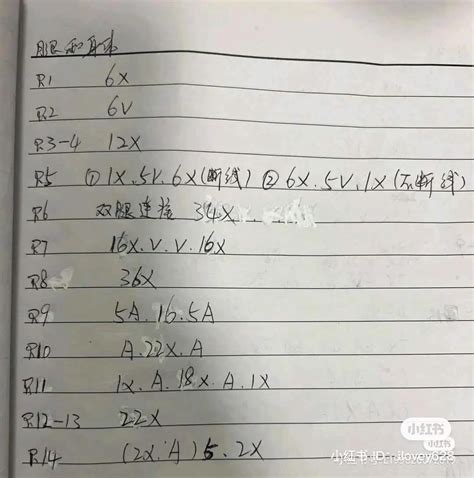 腿和身体
R1 6X
R2 6V
R3-4 12X
R5 ①1X.5V.6X(断线) ②6X.5V.1X(不断线)
R6 双腿连接 34X
R7 16X.V.V.16X
R8 36X
R9 5A.16.5A
R10 A.22X.A
R11 1X.A.18X.A.1X
R12-13 22X
R14 (2X.A)5.2X
小红书
小红书
小红书 ID: